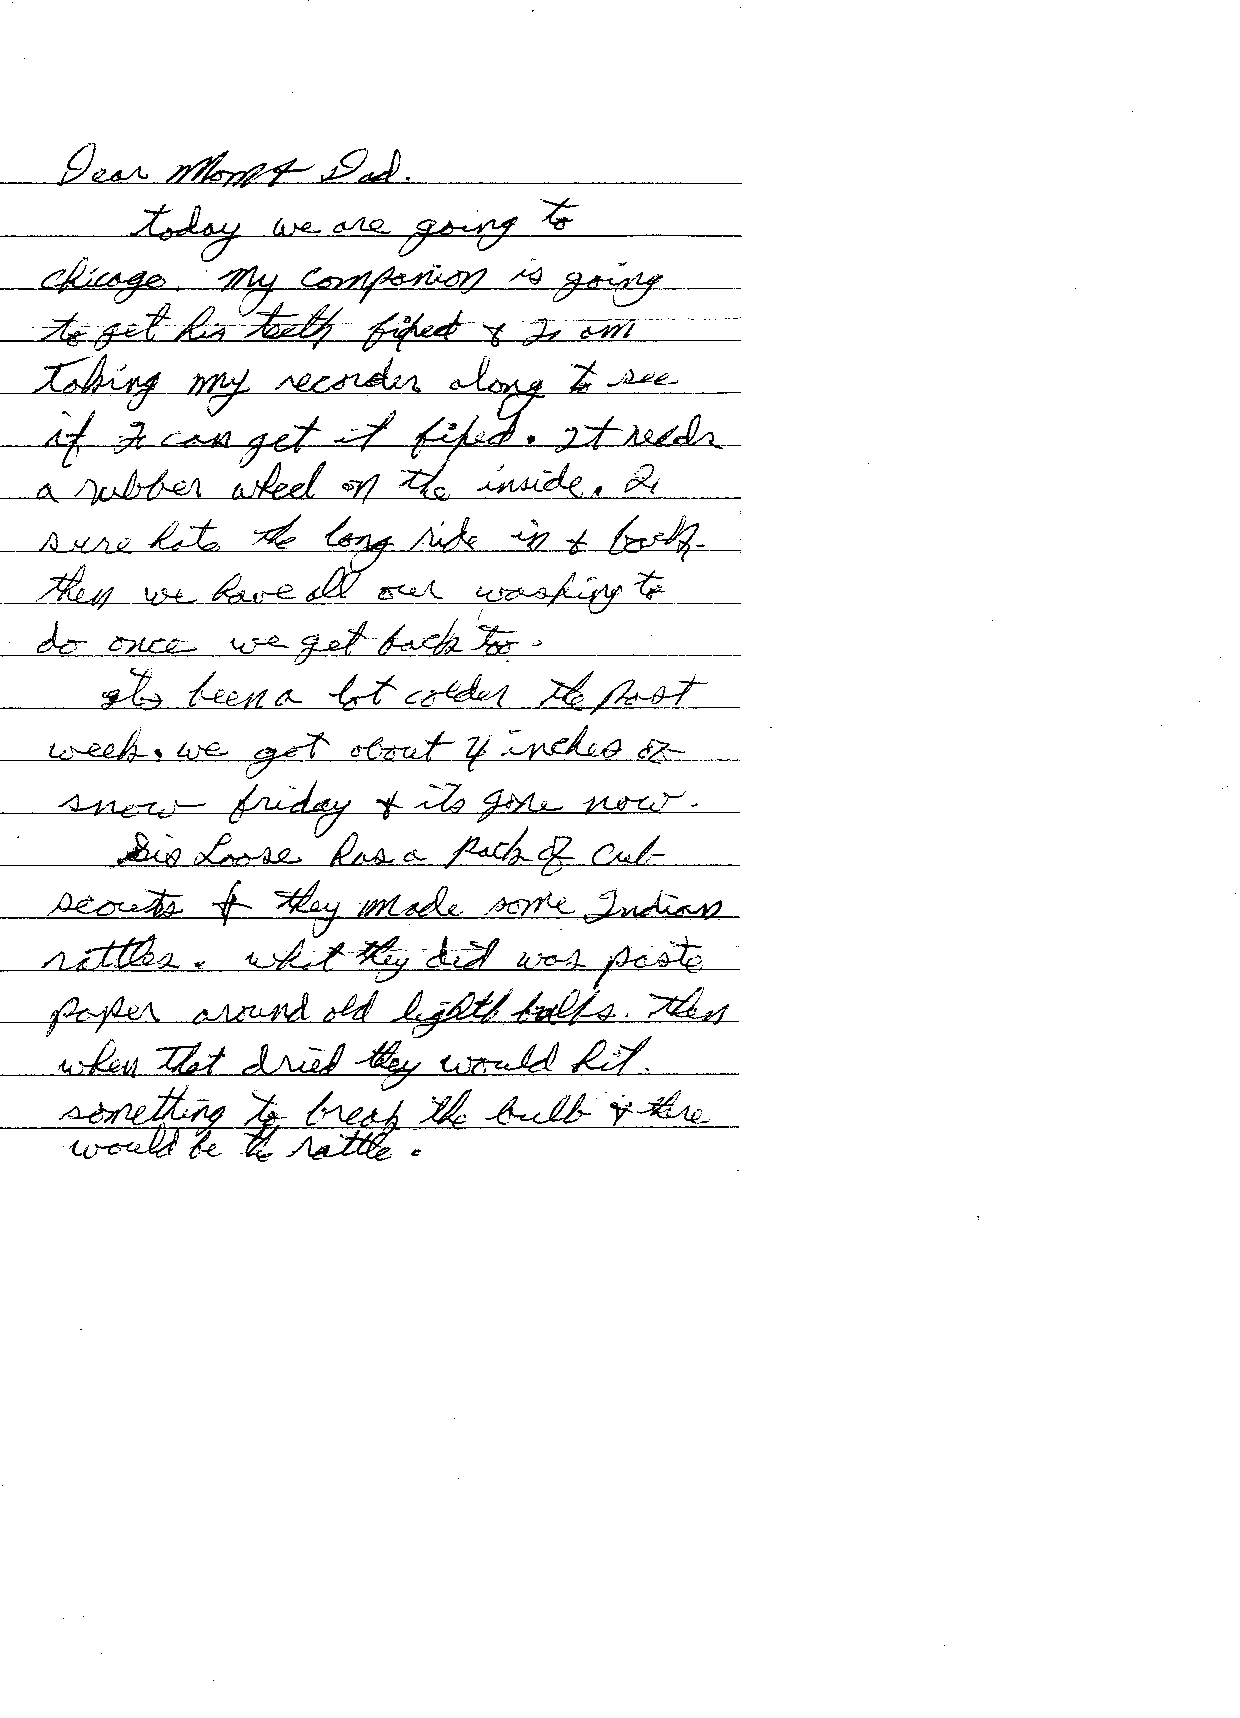 Dear Mom & Dad.
today we are going to
chicago. My companion is going
to get his teeth fixed & I am
Taking my recorder along to see
if I can get it fixed. It needs
a rubber wheel on the inside. I
sure hate the long ride in & back.
then we have all our washing to
do once we get back too.
its been a lot colder the past
week. we got about 4 inches of
snow friday & its gone now.
Sis Loose has a pack of cub
scouts & they made some Indian
rattles. what they did was paste
paper around old light bulbs. Then
when that dried they would hit
something to break the bulb & there
would be the rattle.